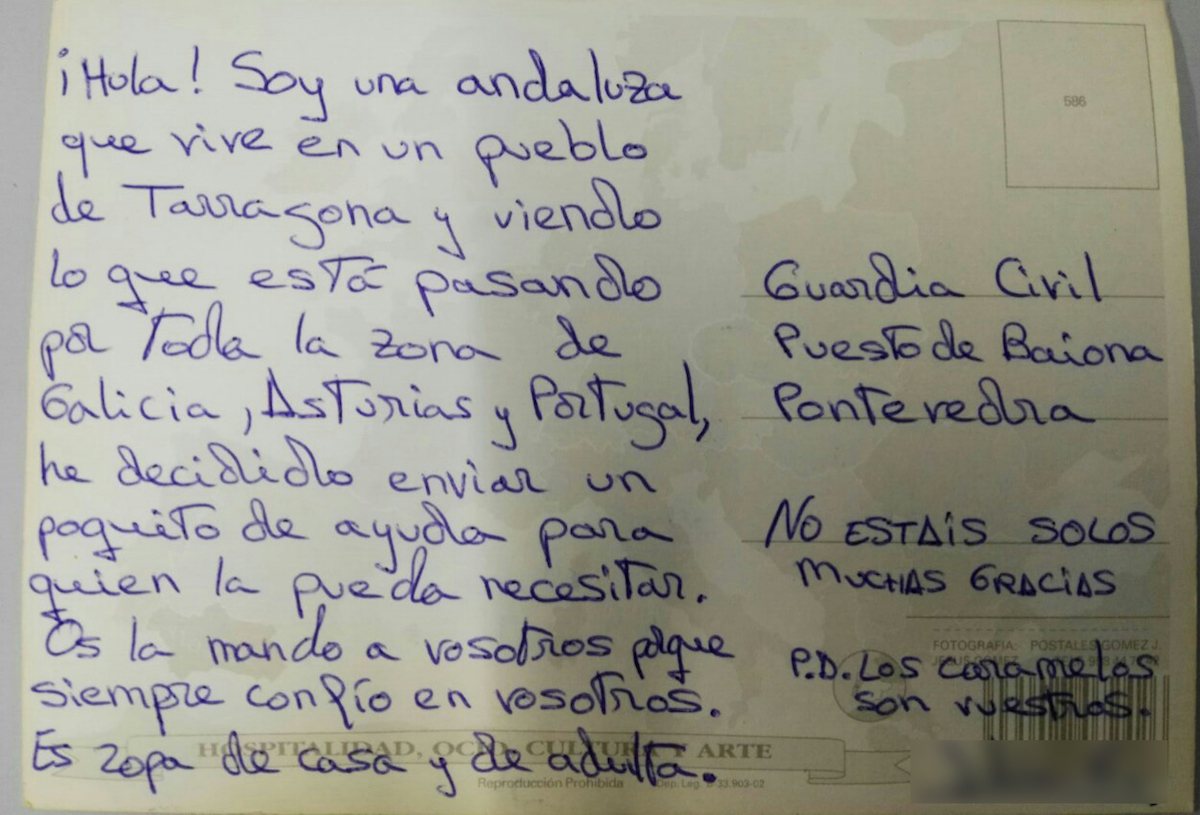 ¡Hola! Soy una andaluza
que vive en un pueblo
de Tarragona y viendo
lo que está pasando
por toda la zona de
Galicia, Asturias y Portugal,
he decidido enviar un
poquito de ayuda para
quien la pueda necesitar.
Os la mando a vosotros pq que
siempre confío en vosotros.
Es ropa de casa y de adulta.
586
Guardia Civil
Puesto de Baiona
Pontevedra
NO ESTAÍS SOLOS
MUCHAS GRACIAS
P.D. Los caramelos
son vuestros.
FOTOGRAFIA: POSTALES GOMEZ J.
HOSPITALIDAD, OCIO, CULTURA Y ARTE
Reproducción Prohibida Dep. Leg. B-33.903-02